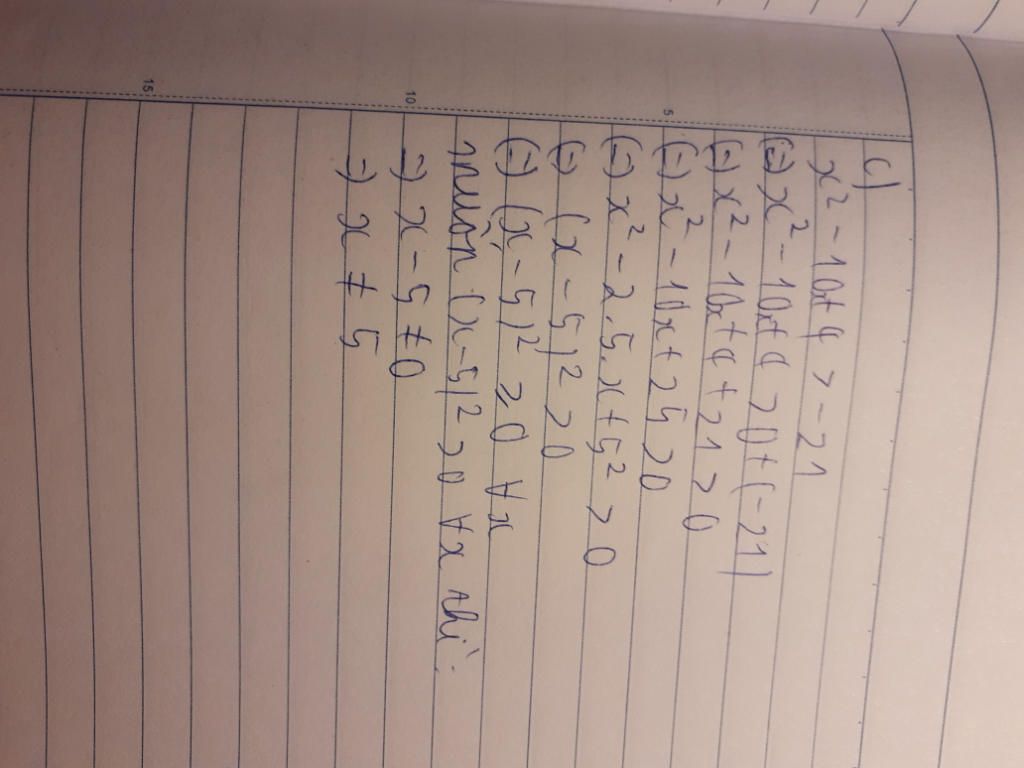 c)
x² - 10x + 4 > - 21
(=) x² - 10x + 4 > 0 + (-21)
(=) x² - 10x + 4 + 21 > 0
(=) x² - 10x + 25 > 0
(=) x² - 2.5.x + 5² > 0
(=) (x - 5)² > 0
(=) (x - 5)² ≥ 0 ∀x
muốn (x - 5)² > 0 ∀x thì:
=) x - 5 ≠ 0
=) x ≠ 5
5
10
15